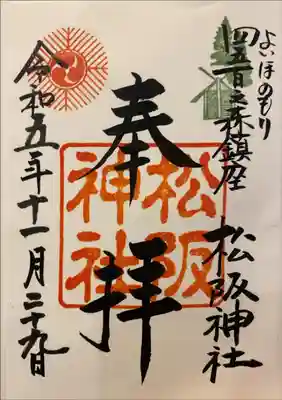 よいほのもり
四五百之森鎮座
松阪神社
奉拝
松阪
神社
令和五年十一月二十九日